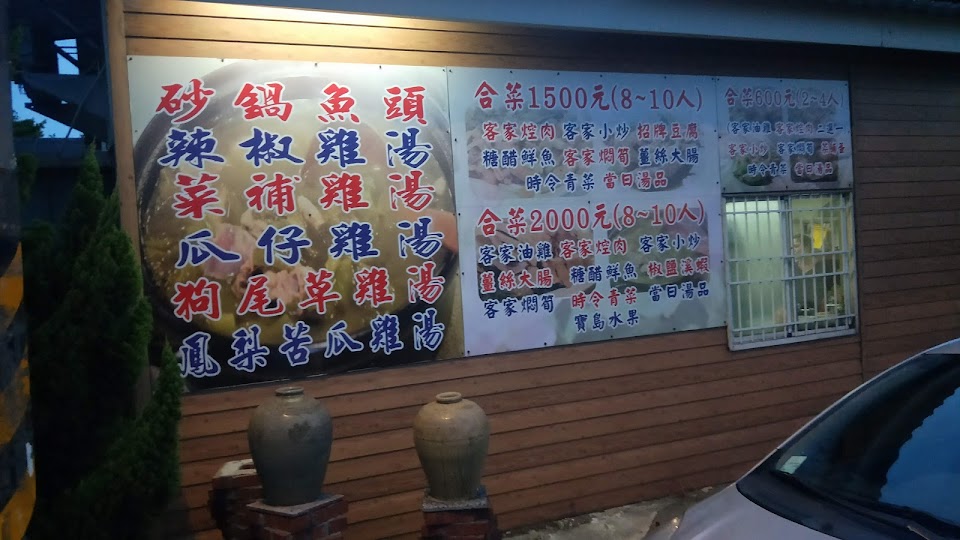 砂鍋魚頭
辣椒雞湯
菜補雞湯
瓜仔雞湯
狗尾草雞湯
鳳梨苦瓜雞湯
合菜1500元(8~10人)
客家焢肉 客家小炒 招牌豆腐
糖醋鮮魚 客家燜筍 薑絲大腸
時令青菜 當日湯品
合菜2000元(8~10人)
客家油雞 客家焢肉 客家小炒
薑絲大腸 糖醋鮮魚 椒盬溪蝦
客家燜筍 時令青菜 當日湯品
寶島水果
合菜600元(2~4人)
(客家油雞 客家焢肉 二選一
客家小炒 客家燜筍 菜脯蛋
時令青菜 當日湯品